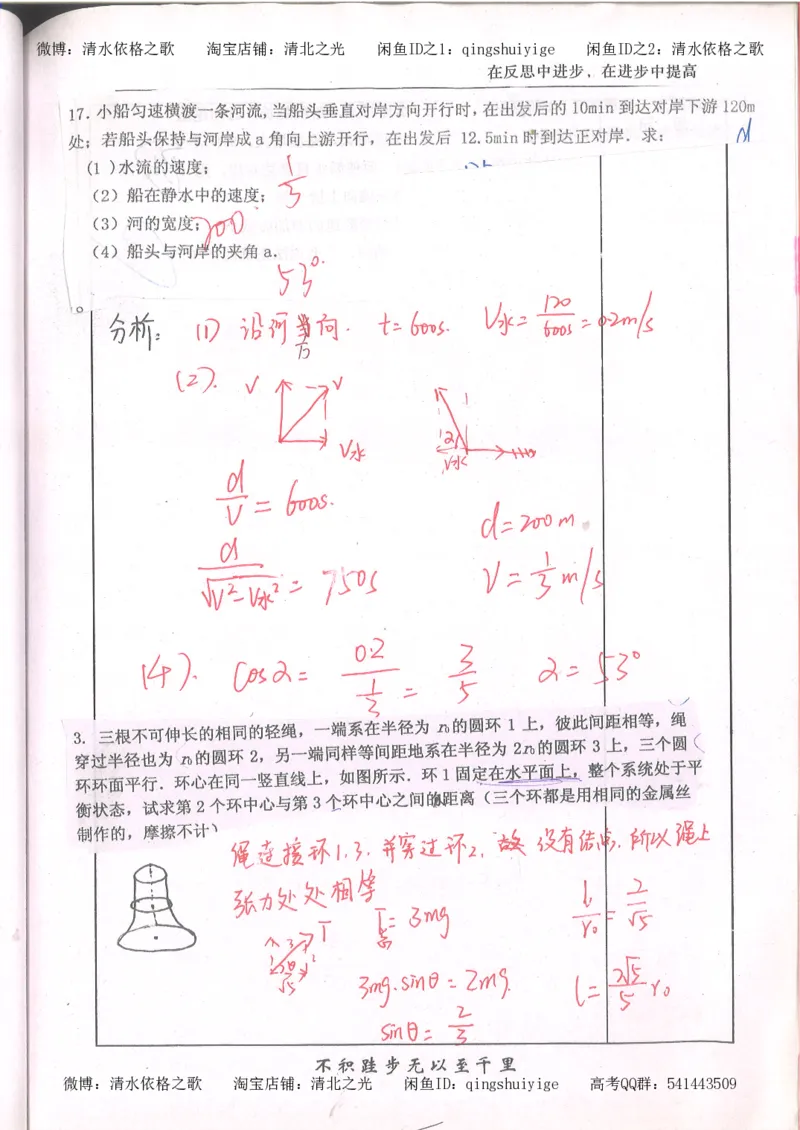 微博：清水依格之歌 淘宝店铺：清北之光 闲鱼ID之1：qingshuiyige 闲鱼ID之2：清水依格之歌
在反思中进步，在进步中提高
17. 小船匀速横渡一条河流，当船头垂直对岸方向开行时，在出发后的 10min 到达对岸下游 120m
处；若船头保持与河岸成 a 角向上游开行，在出发后 12.5min 时到达正对岸．求： d
(1)水流的速度；
(2) 船在静水中的速度； 1/3
(3) 河的宽度； 200
(4) 船头与河岸的夹角 a．
53°.
分析： (1) 沿河方向. t=600s. V水=120/600s=0.2m/s
(2). V V
V水 V水
d/V=600s.
d=200m.
d/√V²-V水²=750s V=1/3m/s
(4). cosα=0.2/(1/3)=3/5 α=53°
3. 三根不可伸长的相同的轻绳，一端系在半径为 r₀的圆环 1 上，彼此间距相等，绳
穿过半径也为 r₀的圆环 2，另一端同样等间距地系在半径为 2r₀的圆环 3 上，三个圆
环环面平行．环心在同一竖直线上，如图所示．环 1 固定在水平面上，整个系统处于平
衡状态，试求第 2 个环中心与第 3 个环中心之间的距离（三个环都是用相同的金属丝
制作的，摩擦不计）
绳连接环1.3. 并穿过环2. 故 没有结点. 所以绳上
张力处处相等
T总=3mg l/r₀=2/√5
3mg·sinθ=2mg. l=2√5/5 r₀
sinθ=2/3
不积跬步无以至千里
微博：清水依格之歌 淘宝店铺：清北之光 闲鱼ID：qingshuiyige 高考QQ群：541443509